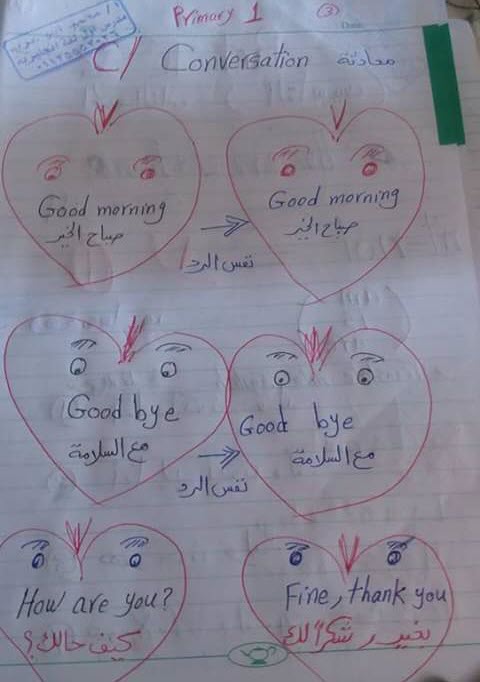 Primary 1
③
Date
C/ Conversation محادثة
Good morning
صباح الخير
Good morning
صباح الخير
نفس الرد
Good bye
مع السلامة
Good bye
مع السلامة
نفس الرد
How are you?
كيف حالك؟
Fine, thank you
بخير, شكراً لك